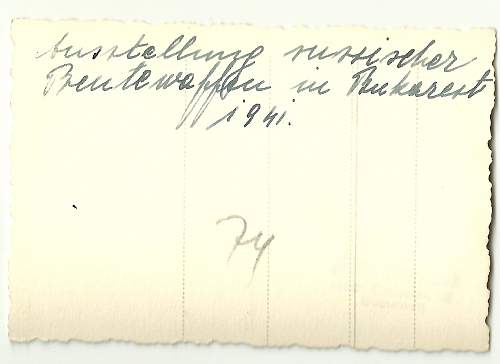 Ausstellung russischer
Beutewaffen in Bukarest
1941.
74